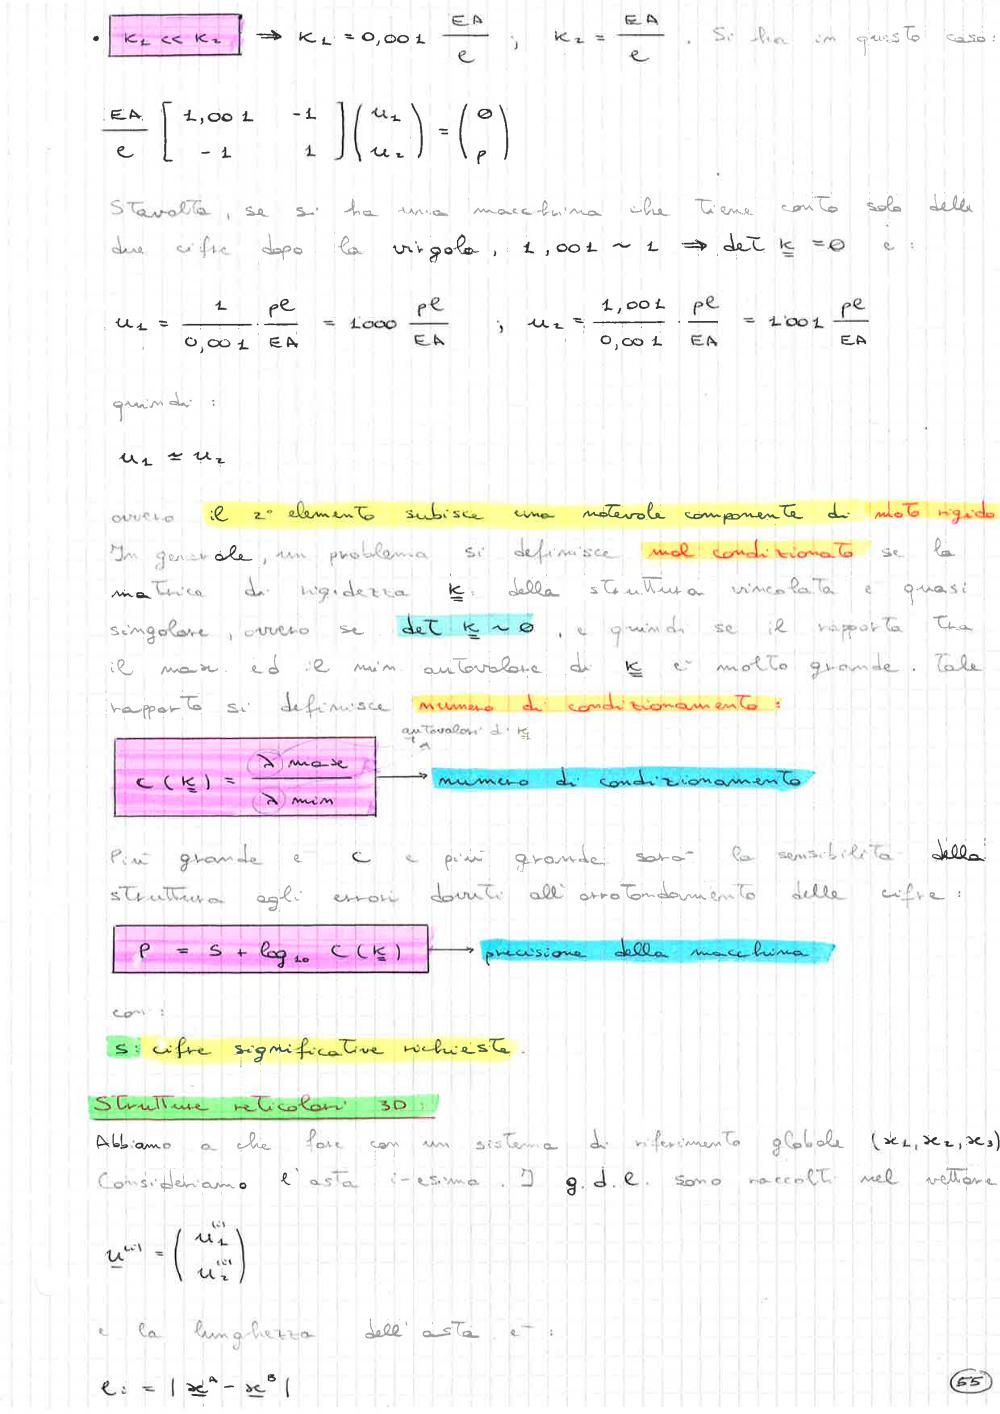 • K₁ << K₂ ⇒ K₁ = 0,001 EA/e ; K₂ = EA/e . Si ha in questo caso:
EA/e [ 1,001 -1 ; -1 1 ] ( u₁ ; u₂ ) = ( 0 ; P )
Stavolta, se si ha una macchina che tiene conto solo delle
due cifre dopo la virgola, 1,001 ~ 1 ⇒ det K = 0 e:
u₁ = 1/0,001 · pl/EA = 1000 pl/EA ; u₂ = 1,001/0,001 · pl/EA = 1001 pl/EA
quindi:
u₁ ≃ u₂
ovvero il 2° elemento subisce una notevole componente di moto rigido
In generale, un problema si definisce mal condizionato se la
matrice di rigidezza K della struttura vincolata è quasi
singolare, ovvero se det K ~ 0, e quindi se il rapporto tra
il max ed il min autovalore di K è molto grande. Tale
rapporto si definisce numero di condizionamento:
autovalori di K
C (K) = λ max / λ min → numero di condizionamento
Più grande è C e più grande sarà la sensibilità della
struttura agli errori dovuti all'arrotondamento delle cifre:
P = S + log₁₀ C (K) → precisione della macchina
con:
S: cifre significative richieste.
Strutture reticolari 3D:
Abbiamo a che fare con un sistema di riferimento globale (x₁, x₂, x₃)
Consideriamo l'asta i-esima. I g.d.l. sono raccolti nel vettore
u⁽ⁱ⁾ = ( u₁⁽ⁱ⁾ ; u₂⁽ⁱ⁾ )
e la lunghezza dell'asta è:
lᵢ = | xᴬ - xᴮ |
55